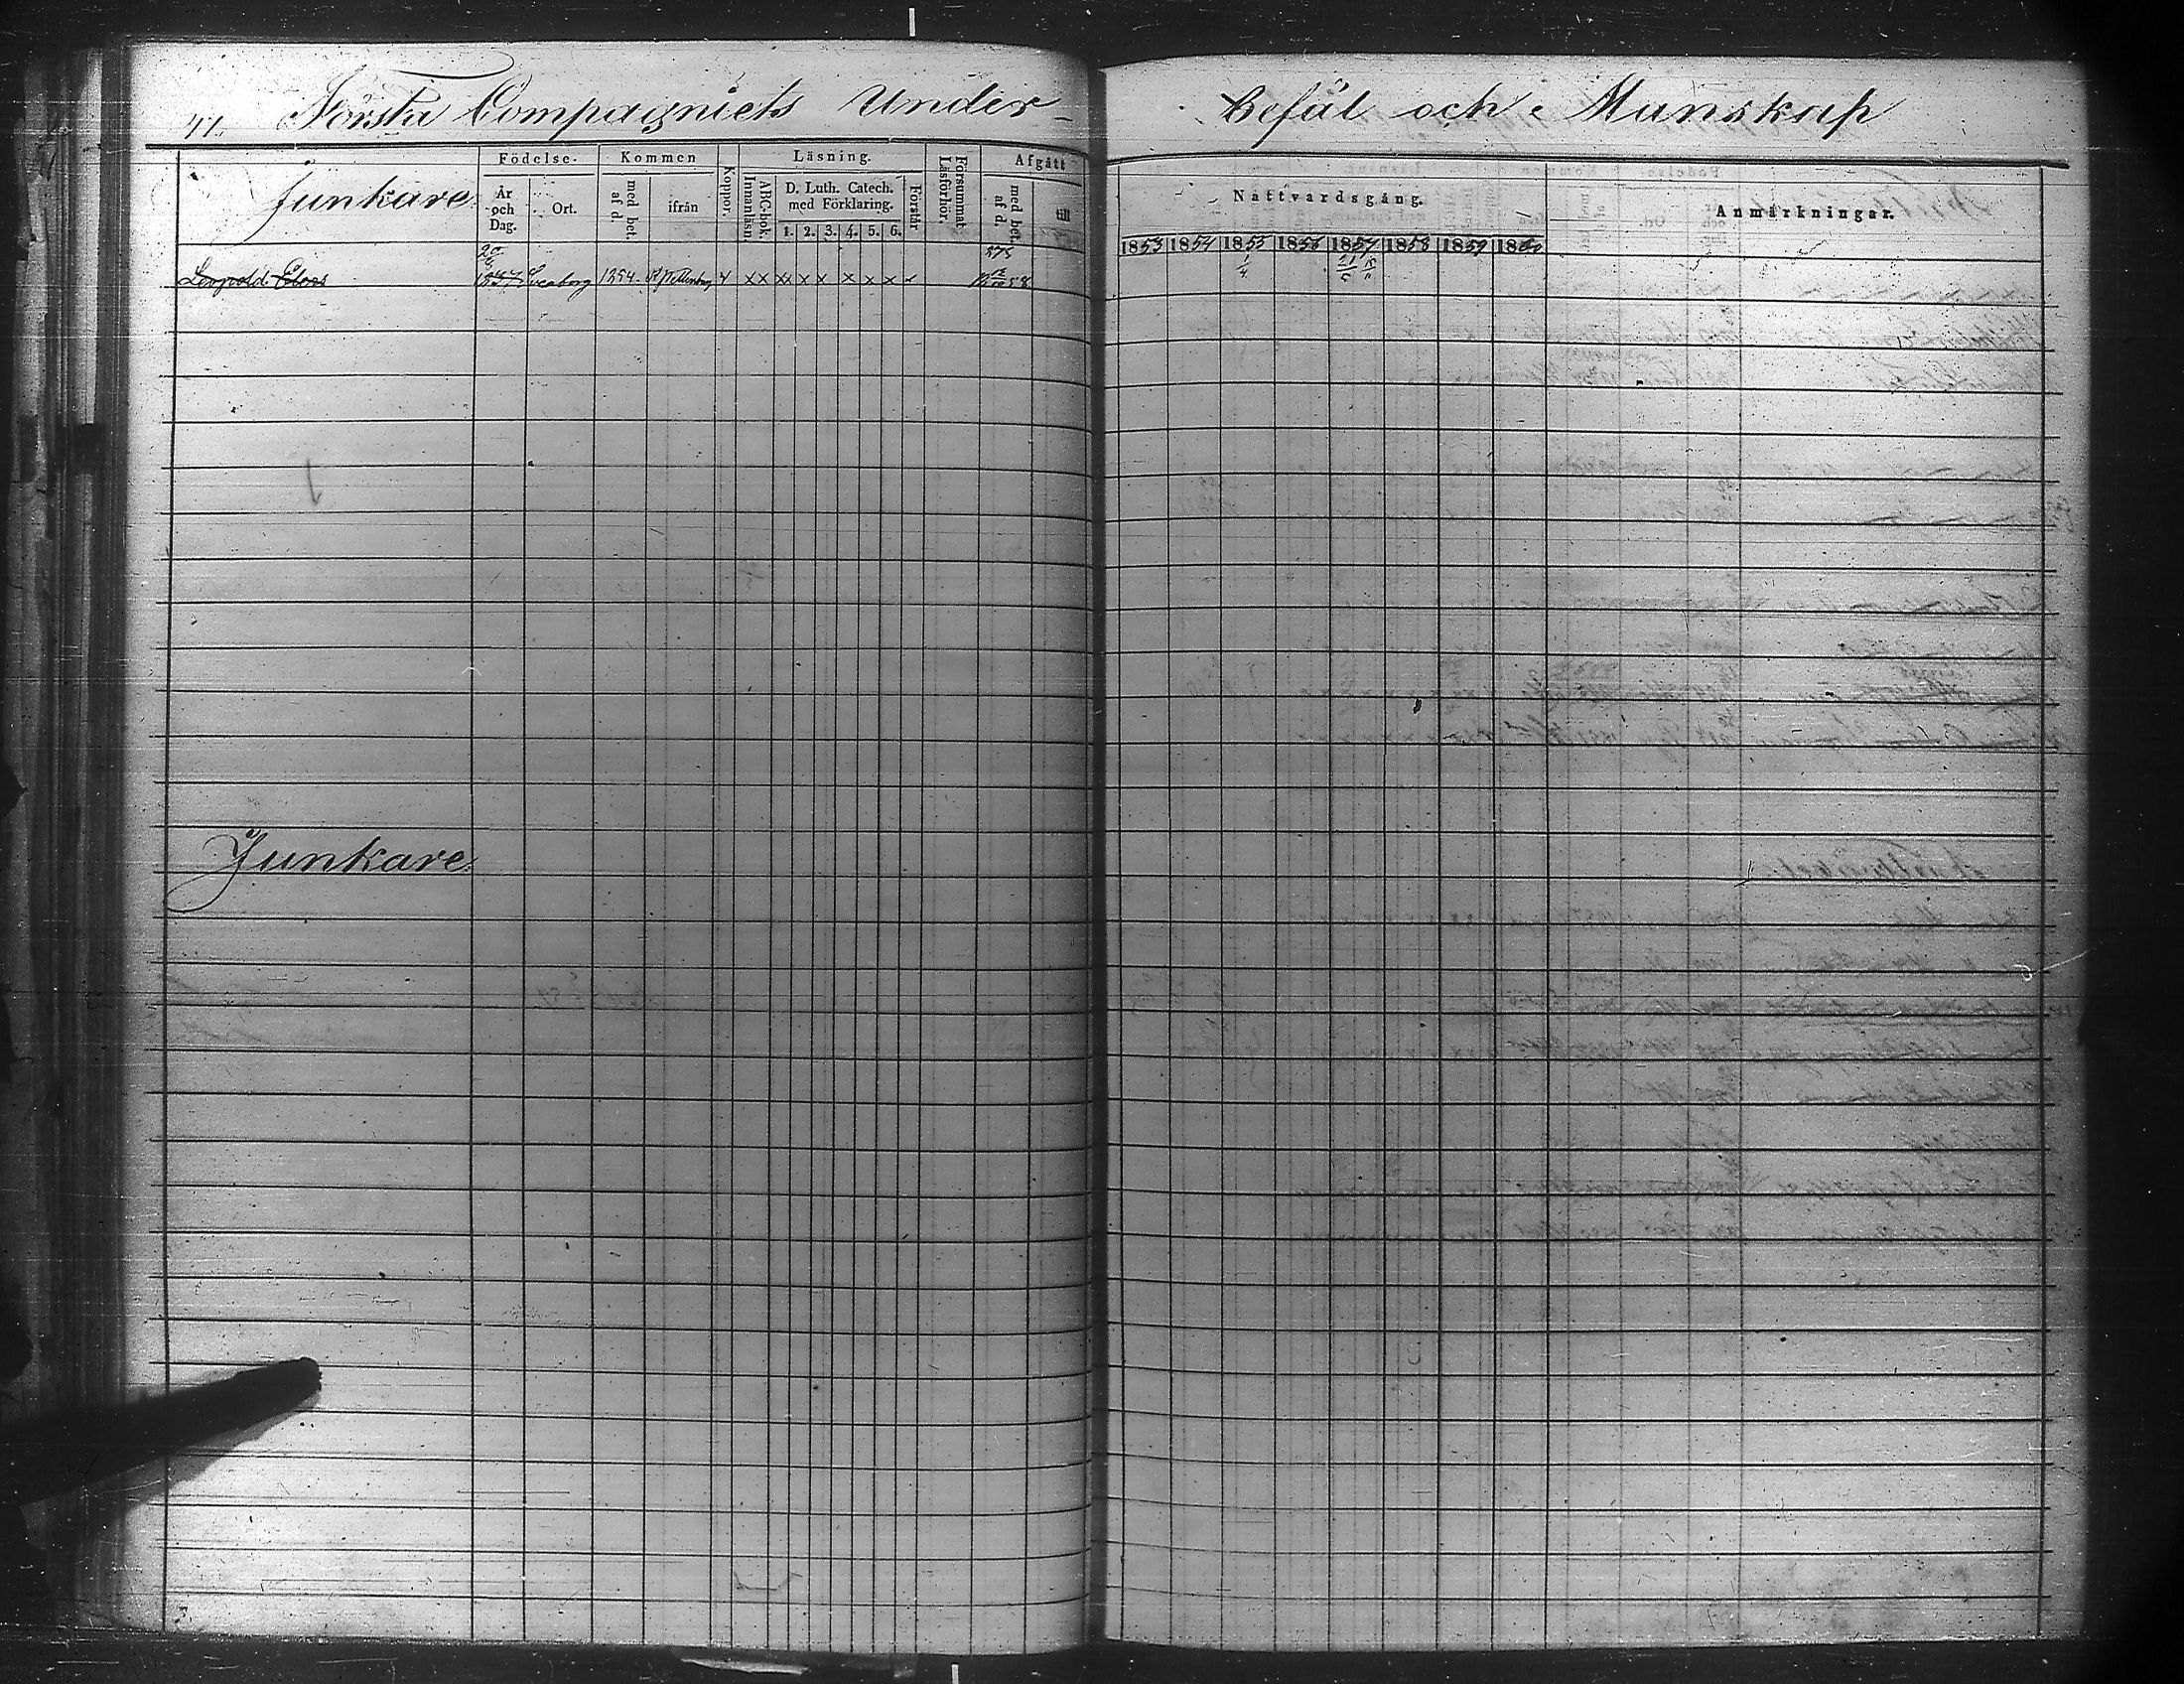 41. Första Compagniets Under- Befäl och Manskap
Junkare
Födelse. Kommen Koppor. Läsning. Försummat Läsförhör. Afgått
År och Dag. Ort. med bet. af d. ifrån ABC-bok. Innanläsn D. Luth. Catech. med Förklaring. Förstår med bet. af d. till
1. 2. 3. 4. 5. 6.
Nattvardsgång. Anmärkningar.
1853 1854 1855 1856 1857 1858 1859 1860
Leopold 1837 Sveaborg 1854 x x x x x x x x
1/4 21/5
Junkare